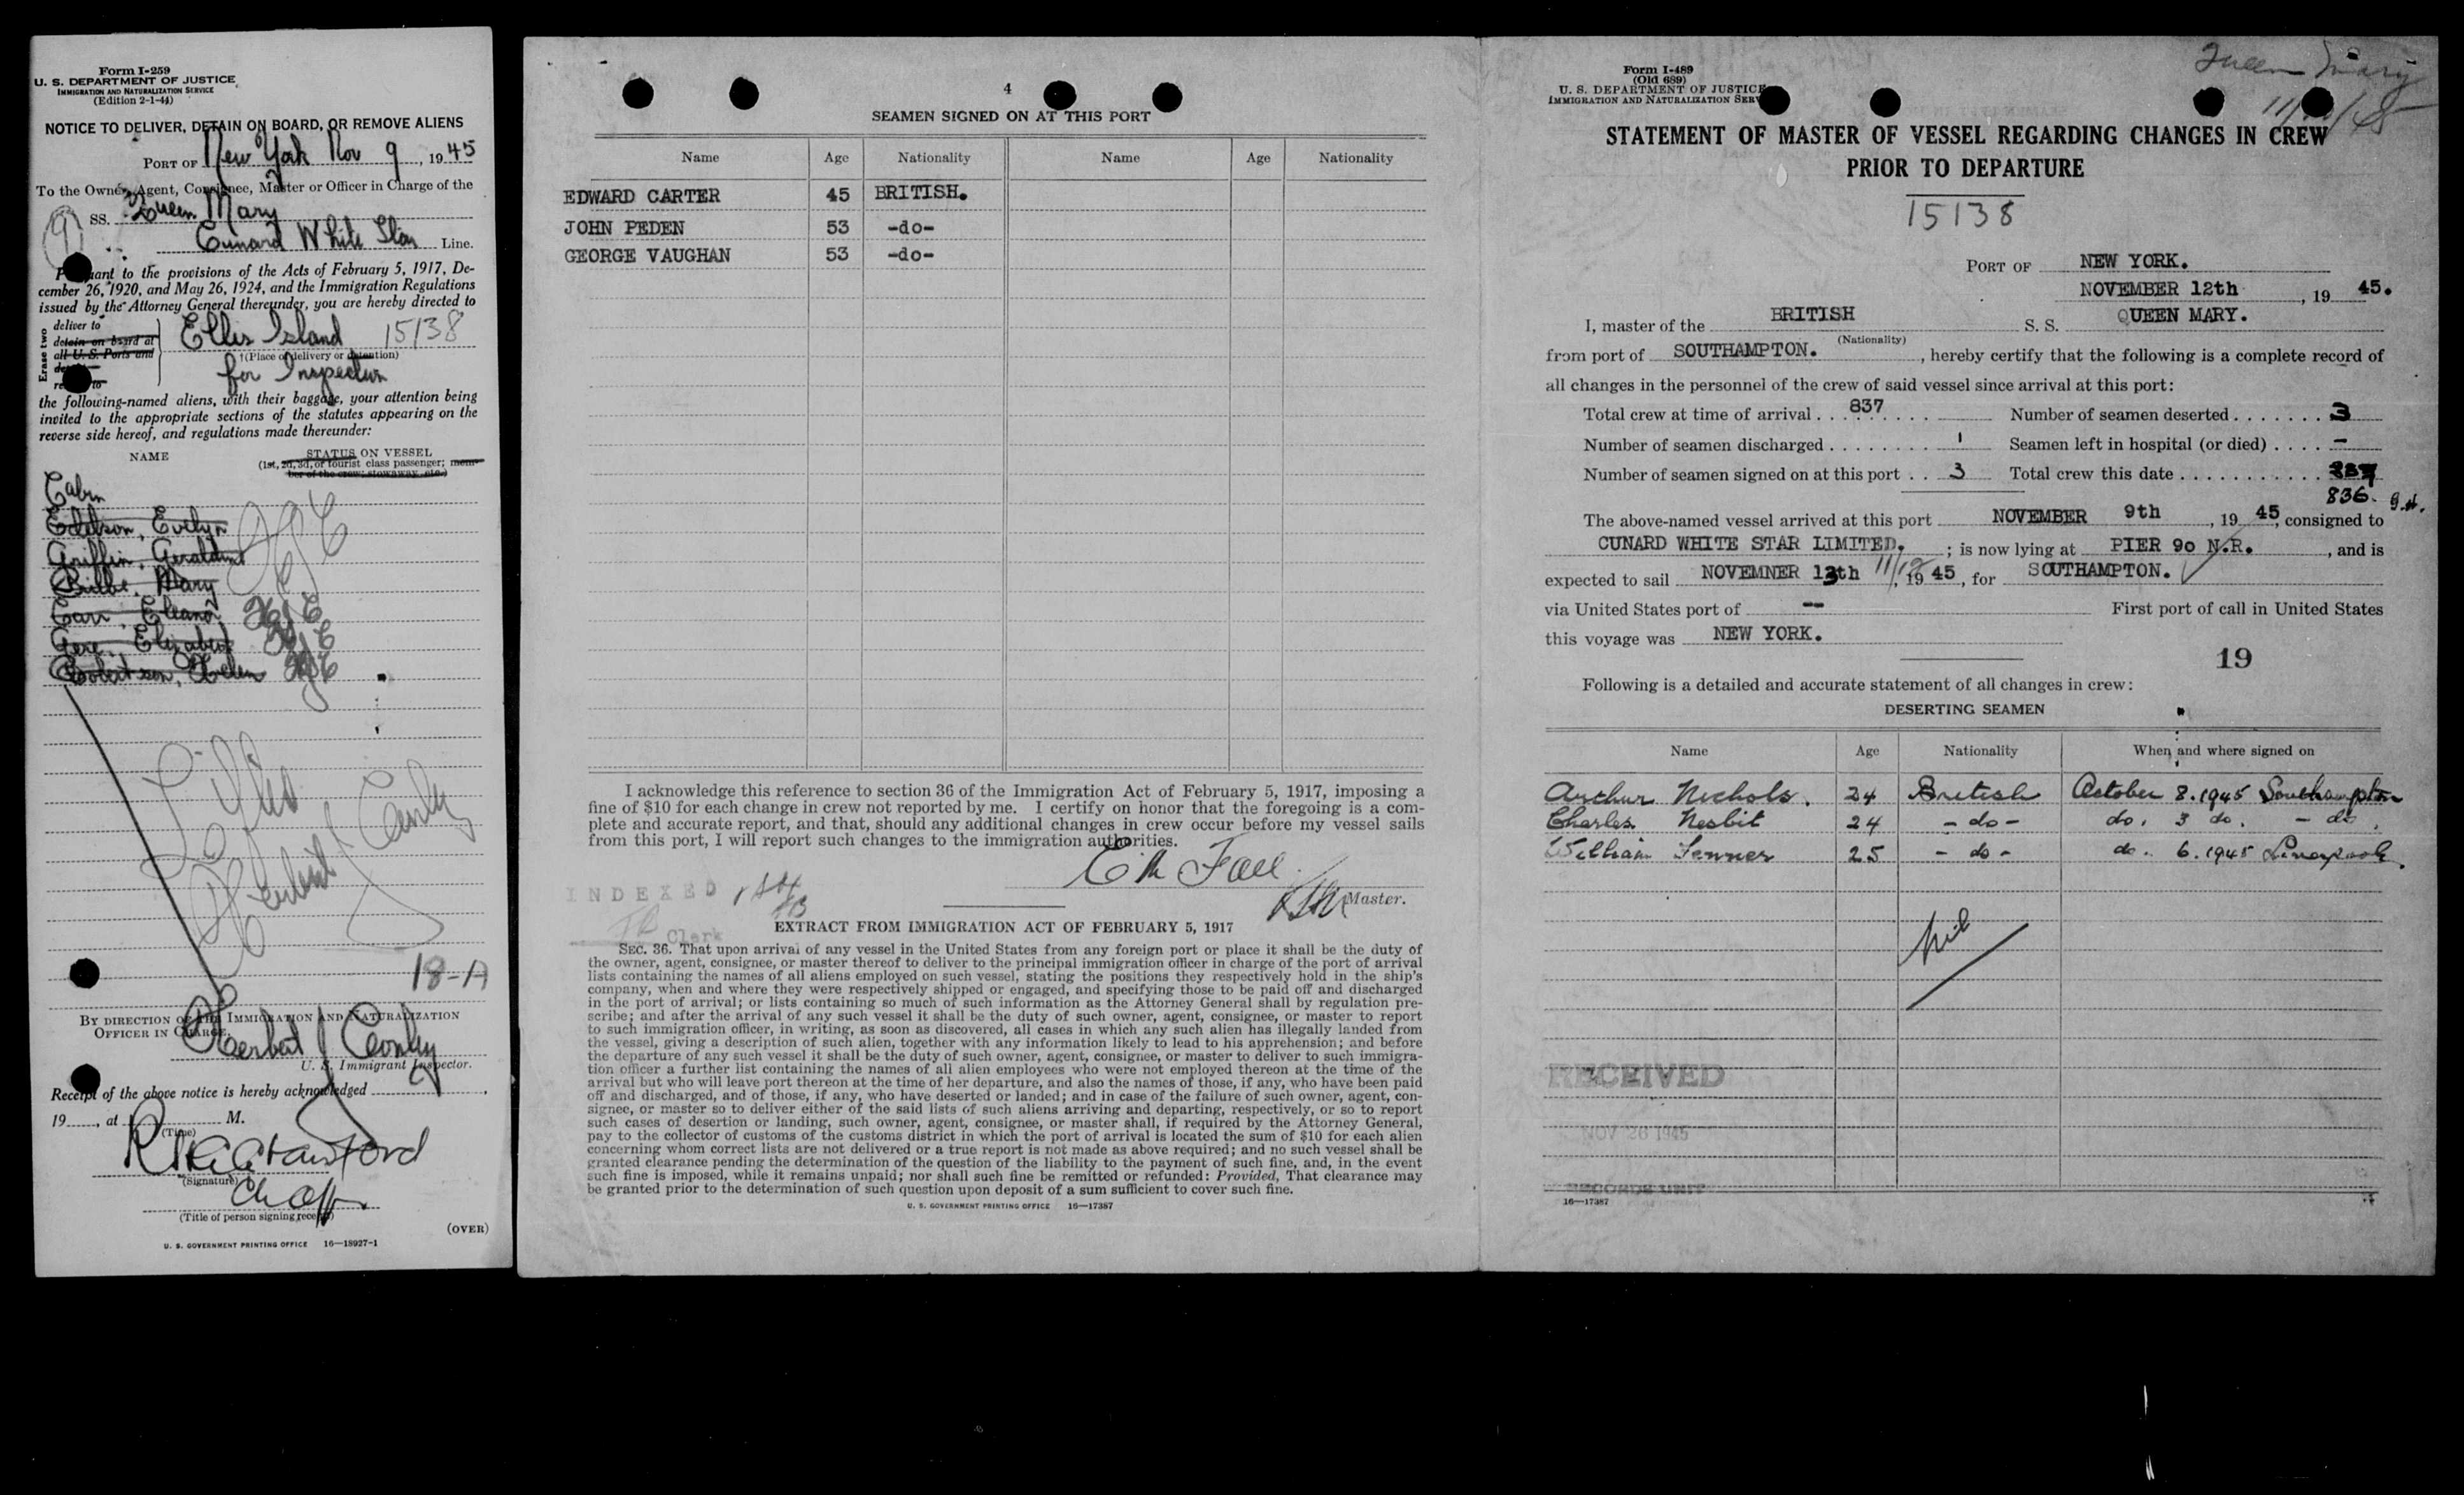 Form I-259
U. S. DEPARTMENT OF JUSTICE
IMMIGRATION AND NATURALIZATION SERVICE
(Edition 2-1-44)
NOTICE TO DELIVER, DETAIN ON BOARD, OR REMOVE ALIENS
PORT OF New York Nov 9, 1945
To the Owner, Agent, Consignee, Master or Officer in Charge of the
SS. Queen Mary
Cunard White Star Line.
Pursuant to the provisions of the Acts of February 5, 1917, De-
cember 26, 1920, and May 26, 1924, and the Immigration Regulations
issued by the Attorney General thereunder, you are hereby directed to
Erase two
deliver to
detain on board at
all U. S. Ports and
Ellis Island 15138
†(Place of delivery or detention)
for Inspection
the following-named aliens, with their baggage, your attention being
invited to the appropriate sections of the statutes appearing on the
reverse side hereof, and regulations made thereunder:
NAME STATUS ON VESSEL
(1st, 2d, 3d, or tourist class passenger; mem-
ber of the crew; stowaway, etc.)
Cabin
Edelson, Evelyn
Griffin, Geraldine
Mary
Carr, Eleanor
Gere, Elizabeth
Robertson, Helen
Herbert J Conley
18-A
BY DIRECTION OF THE IMMIGRATION AND NATURALIZATION
OFFICER IN CHARGE.
Herbert J Conley
U. S. Immigrant Inspector.
Receipt of the above notice is hereby acknowledged
19, at M.
(Time)
Crawford
(Signature)
Ch Off
(Title of person signing receipt)
(OVER)
U. S. GOVERNMENT PRINTING OFFICE 16—18927-1
4
SEAMEN SIGNED ON AT THIS PORT
Name Age Nationality Name Age Nationality
EDWARD CARTER 45 BRITISH.
JOHN PEDEN 53 -do-
GEORGE VAUGHAN 53 -do-
I acknowledge this reference to section 36 of the Immigration Act of February 5, 1917, imposing a
fine of $10 for each change in crew not reported by me. I certify on honor that the foregoing is a com-
plete and accurate report, and that, should any additional changes in crew occur before my vessel sails
from this port, I will report such changes to the immigration authorities.
Fall
Master.
INDEXED
Clerk
EXTRACT FROM IMMIGRATION ACT OF FEBRUARY 5, 1917
SEC. 36. That upon arrival of any vessel in the United States from any foreign port or place it shall be the duty of
the owner, agent, consignee, or master thereof to deliver to the principal immigration officer in charge of the port of arrival
lists containing the names of all aliens employed on such vessel, stating the positions they respectively hold in the ship's
company, when and where they were respectively shipped or engaged, and specifying those to be paid off and discharged
in the port of arrival; or lists containing so much of such information as the Attorney General shall by regulation pre-
scribe; and after the arrival of any such vessel it shall be the duty of such owner, agent, consignee, or master to report
to such immigration officer, in writing, as soon as discovered, all cases in which any such alien has illegally landed from
the vessel, giving a description of such alien, together with any information likely to lead to his apprehension; and before
the departure of any such vessel it shall be the duty of such owner, agent, consignee, or master to deliver to such immigra-
tion officer a further list containing the names of all alien employees who were not employed thereon at the time of the
arrival but who will leave port thereon at the time of her departure, and also the names of those, if any, who have been paid
off and discharged, and of those, if any, who have deserted or landed; and in case of the failure of such owner, agent, con-
signee, or master so to deliver either of the said lists of such aliens arriving and departing, respectively, or so to report
such cases of desertion or landing, such owner, agent, consignee, or master shall, if required by the Attorney General,
pay to the collector of customs of the customs district in which the port of arrival is located the sum of $10 for each alien
concerning whom correct lists are not delivered or a true report is not made as above required; and no such vessel shall be
granted clearance pending the determination of the question of the liability to the payment of such fine, and, in the event
such fine is imposed, while it remains unpaid; nor shall such fine be remitted or refunded: Provided, That clearance may
be granted prior to the determination of such question upon deposit of a sum sufficient to cover such fine.
U. S. GOVERNMENT PRINTING OFFICE 16—17387
Queen Mary
Form I-489
(Old 689)
U. S. DEPARTMENT OF JUSTICE
IMMIGRATION AND NATURALIZATION SERV
STATEMENT OF MASTER OF VESSEL REGARDING CHANGES IN CREW
PRIOR TO DEPARTURE
15138
PORT OF NEW YORK.
NOVEMBER 12th, 19 45.
I, master of the BRITISH S. S. QUEEN MARY.
(Nationality)
from port of SOUTHAMPTON., hereby certify that the following is a complete record of
all changes in the personnel of the crew of said vessel since arrival at this port:
Total crew at time of arrival . . . 837 Number of seamen deserted . . . . . . . 3
Number of seamen discharged . . . . . . . . 1 Seamen left in hospital (or died) . . . . —
Number of seamen signed on at this port . . 3 Total crew this date . . . . . . . . . . . 837
836. G.H.
The above-named vessel arrived at this port NOVEMBER 9th, 19 45, consigned to
CUNARD WHITE STAR LIMITED.; is now lying at PIER 90 N.R., and is
expected to sail NOVEMNER 13th 11/12, 19 45, for SOUTHAMPTON.
via United States port of -- First port of call in United States
this voyage was NEW YORK.
19
Following is a detailed and accurate statement of all changes in crew:
DESERTING SEAMEN
Name Age Nationality When and where signed on
Arthur Nichols. 24 British October 8. 1945 Southampton
Charles Nesbit 24 - do - do. 3 do. - do.
William Fenner 25 - do - do. 6. 1945 Liverpool.
Nil
RECEIVED
NOV 26 1945
RECORDS UNIT
16—17387